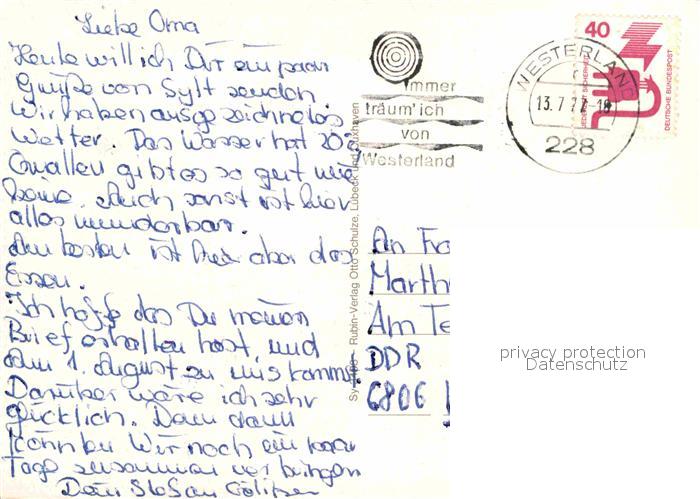 Liebe Oma
Heute will ich Dir ein paar
Grüße von Sylt senden.
Wir haben ausgezeichnetes
Wetter. Das Wasser hat 20°
Quallen gibt es so gut wie
keine. Auch sonst ist hier
alles wunderbar.
Am besten ist hier aber das
Essen.
Ich hoffe das Du meinen
Brief erhalten hast, und
am 1. August zu uns kommst.
Darüber wäre ich sehr
glücklich. Denn dann
können Wir noch ein paar
Tage zusammen verbringen
Dein Stefan
immer
träum' ich
von
Westerland
WESTERLAND
13.7.77-18
228
40
JEDERZEIT SICHERHEIT
DEUTSCHE BUNDESPOST
Rubin-Verlag Otto Schulze, Lübeck und Cuxhaven
An Fra
Marth
Am Te
DDR
6806
privacy protection
Datenschutz